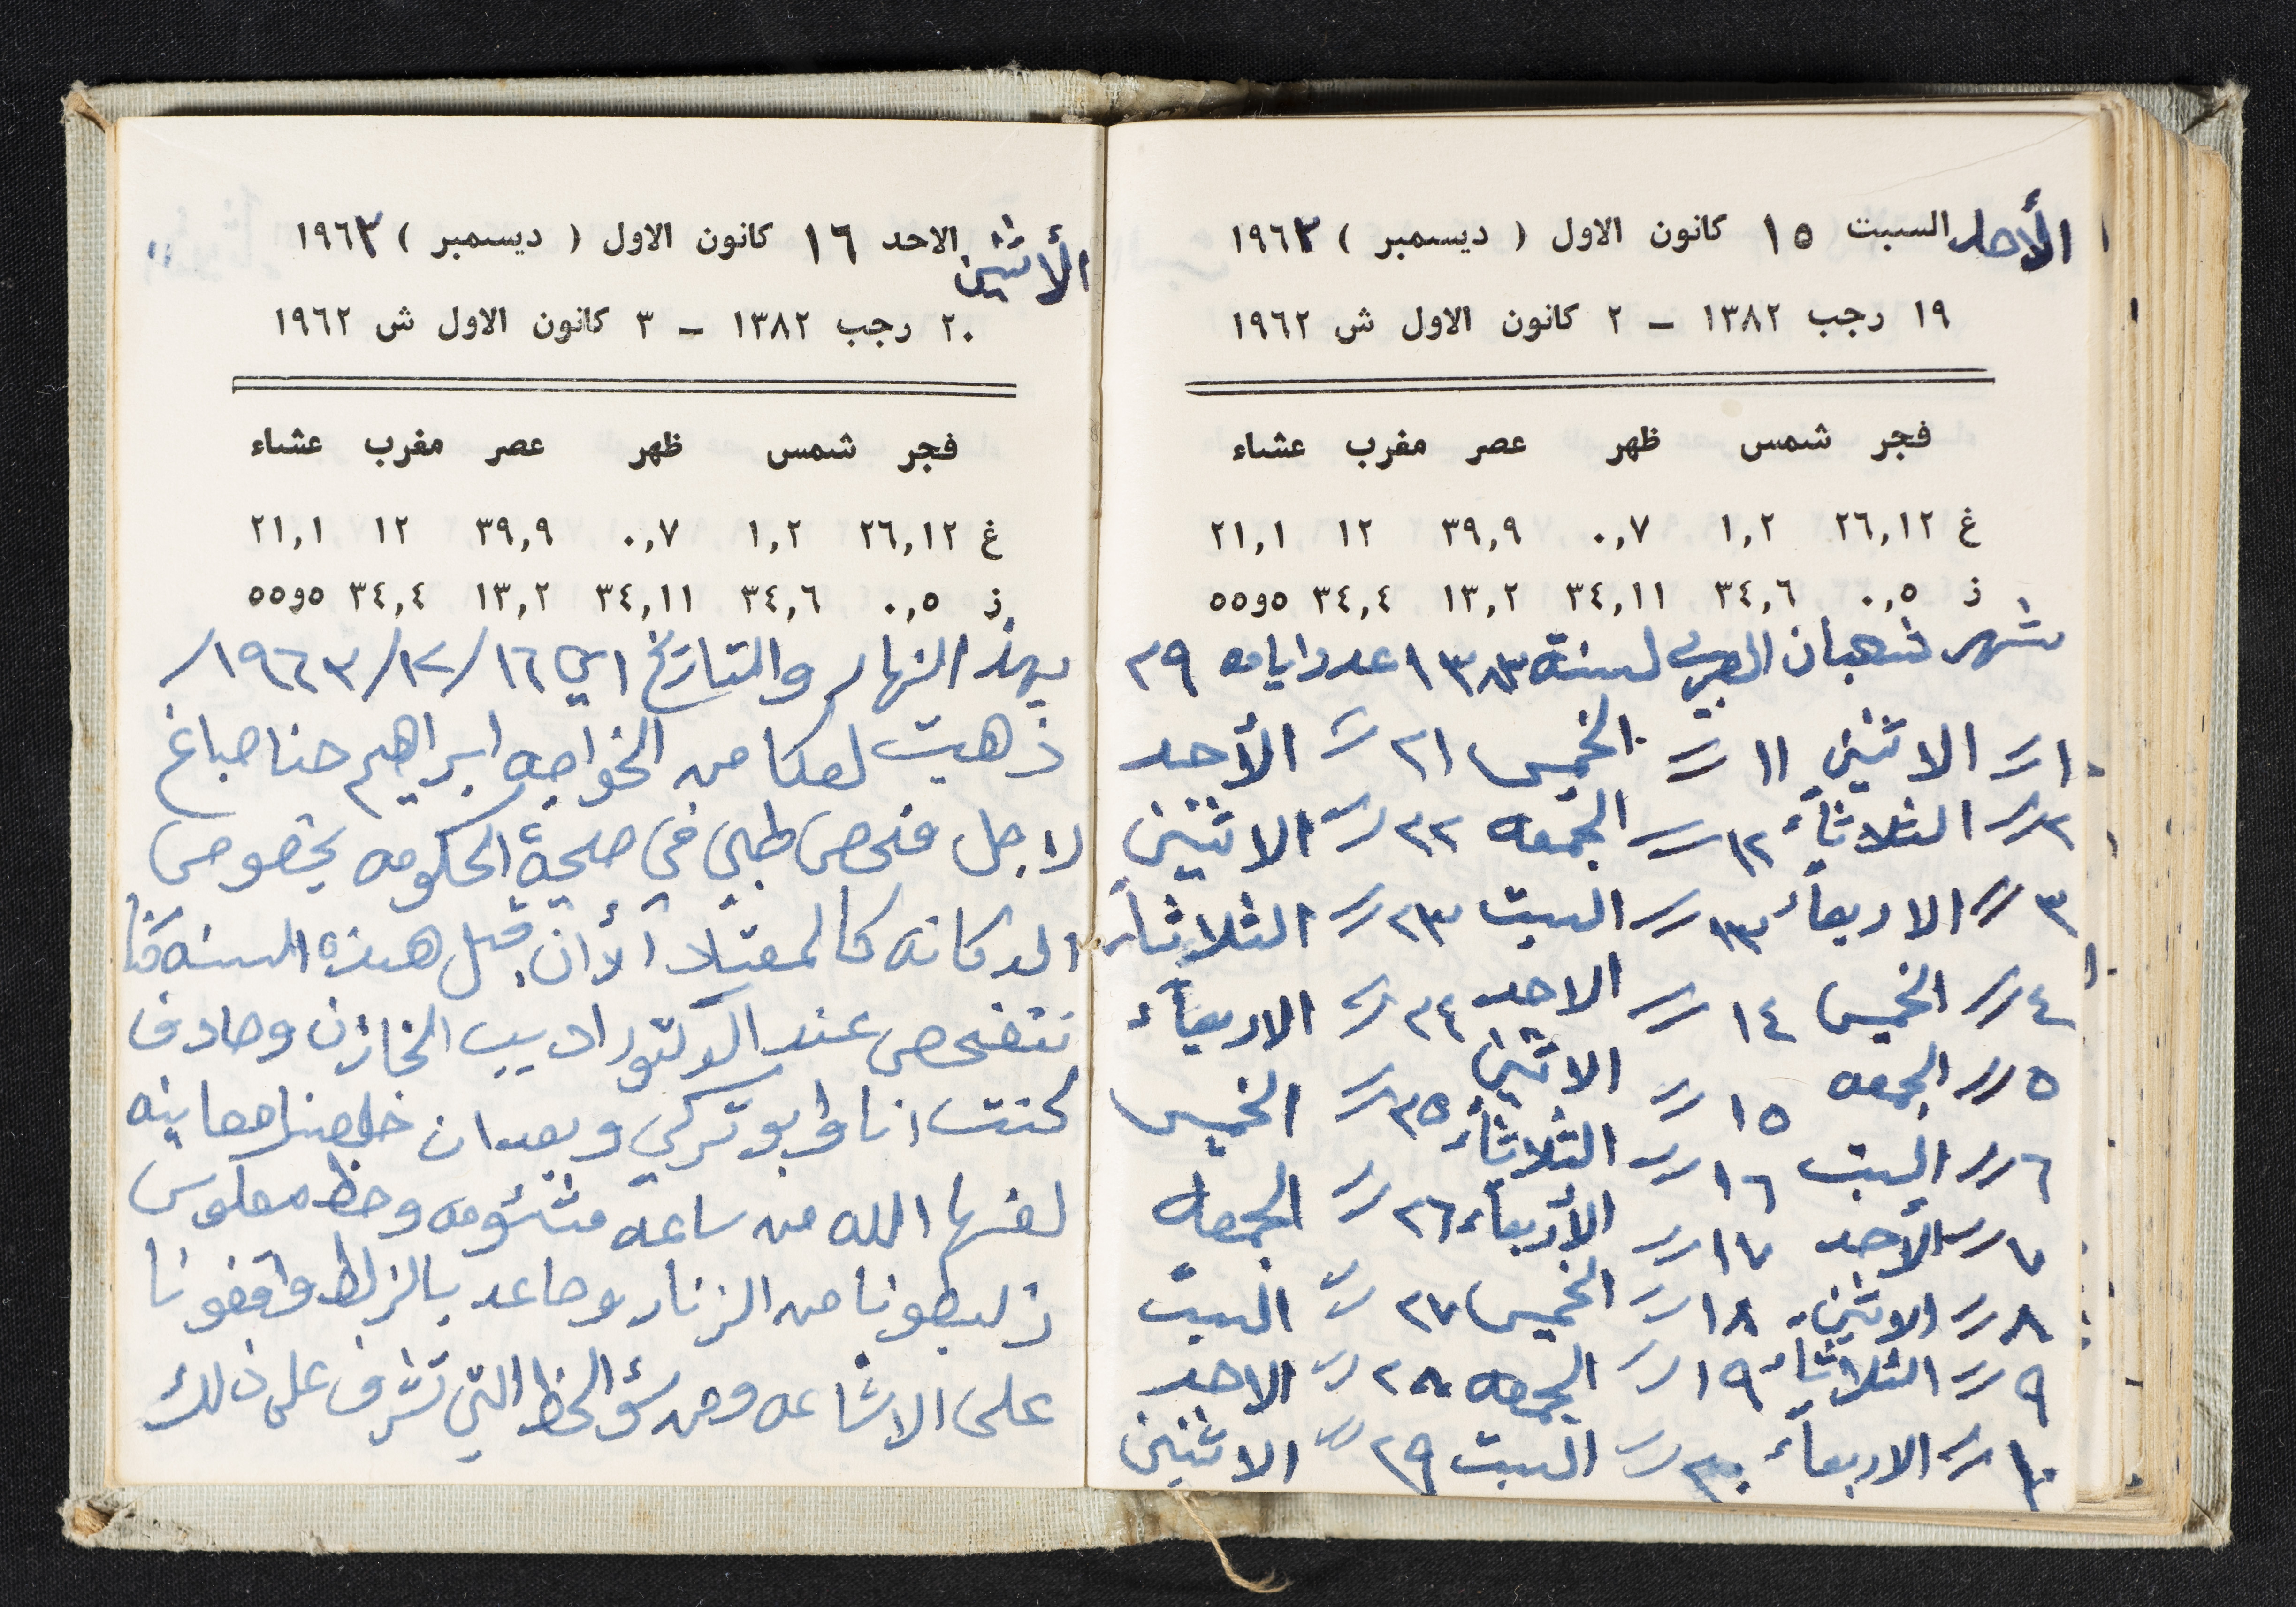 الأحد السبت ١٥ كانون الاول ( ديسمبر ) ١٩٦٣
١٩ رجب ١٣٨٢ – ٢ كانون الاول ش ١٩٦٢
فجر شمس ظهر عصر مغرب عشاء
غ ٢٦,١٢ ١,٢ ٠,٧ ٣٩,٩ ١٢ ٢١,١
ز ٠,٥ ٣٤,٦ ٣٤,١١ ١٣,٢ ٣٤,٤ ٥و٥٥
شهر شعبان العربي لسنة ١٣٨٣ عدد ايامه ٢٩
١ // الاثنين ١١ // الخميس ٢١ // الأحد
٢ // الثلاثاء ١٢ // الجمعه ٢٢ // الاثنين
٣ // الاربعاء ١٣ // السبت ٢٣ // الثلاثاء
٤ // الخميس ١٤ // الاحد ٢٤ // الاربعاء
٥ // الجمعه ١٥ // الاثنين ٢٥ // الخميس
٦ // السبت ١٦ // الثلاثاء ٢٦ // الجمعه
٧ // الأحد ١٧ // الأربعاء ٢٧ // السبت
٨ // الاثنين ١٨ // الخميس ٢٨ // الاحد
٩ // الثلاثاء ١٩ // الجمعه ٢٩ // الاثنين
١٠ // الاربعاء ٢٠ // السبت
الأثنين الاحد ١٦ كانون الاول ( ديسمبر ) ١٩٦٣
٢٠ رجب ١٣٨٢ – ٣ كانون الاول ش ١٩٦٢
فجر شمس ظهر عصر مغرب عشاء
غ ٢٦,١٢ ١,٢ ٠,٧ ٣٩,٩ ١٢ ٢١,١
ز ٠,٥ ٣٤,٦ ٣٤,١١ ١٣,٢ ٣٤,٤ ٥و٥٥
بهذ النهار والتاريخ اي ١٦/١٢/١٩٦٣/
ذهبت لعكا من الخواجه ابراهيم حنا صباغ
لاجل فحص طبي في صحية الحكومه بخصوص
الدكانه كالمعتاد الأان قبل هذه السنه كنا
نتفحص عند الدكتور اديب الخازن وصادف
كنت انا وابو تركي وبعد ان خلصنا معاينه
لعنها الله من ساعه مشئومه وحظ معكوس
زلبطونا من الزنار وصاعد بالزلط وقفونا
على الاشاعه ومن سؤ الحظ التي تشرف على ذلك